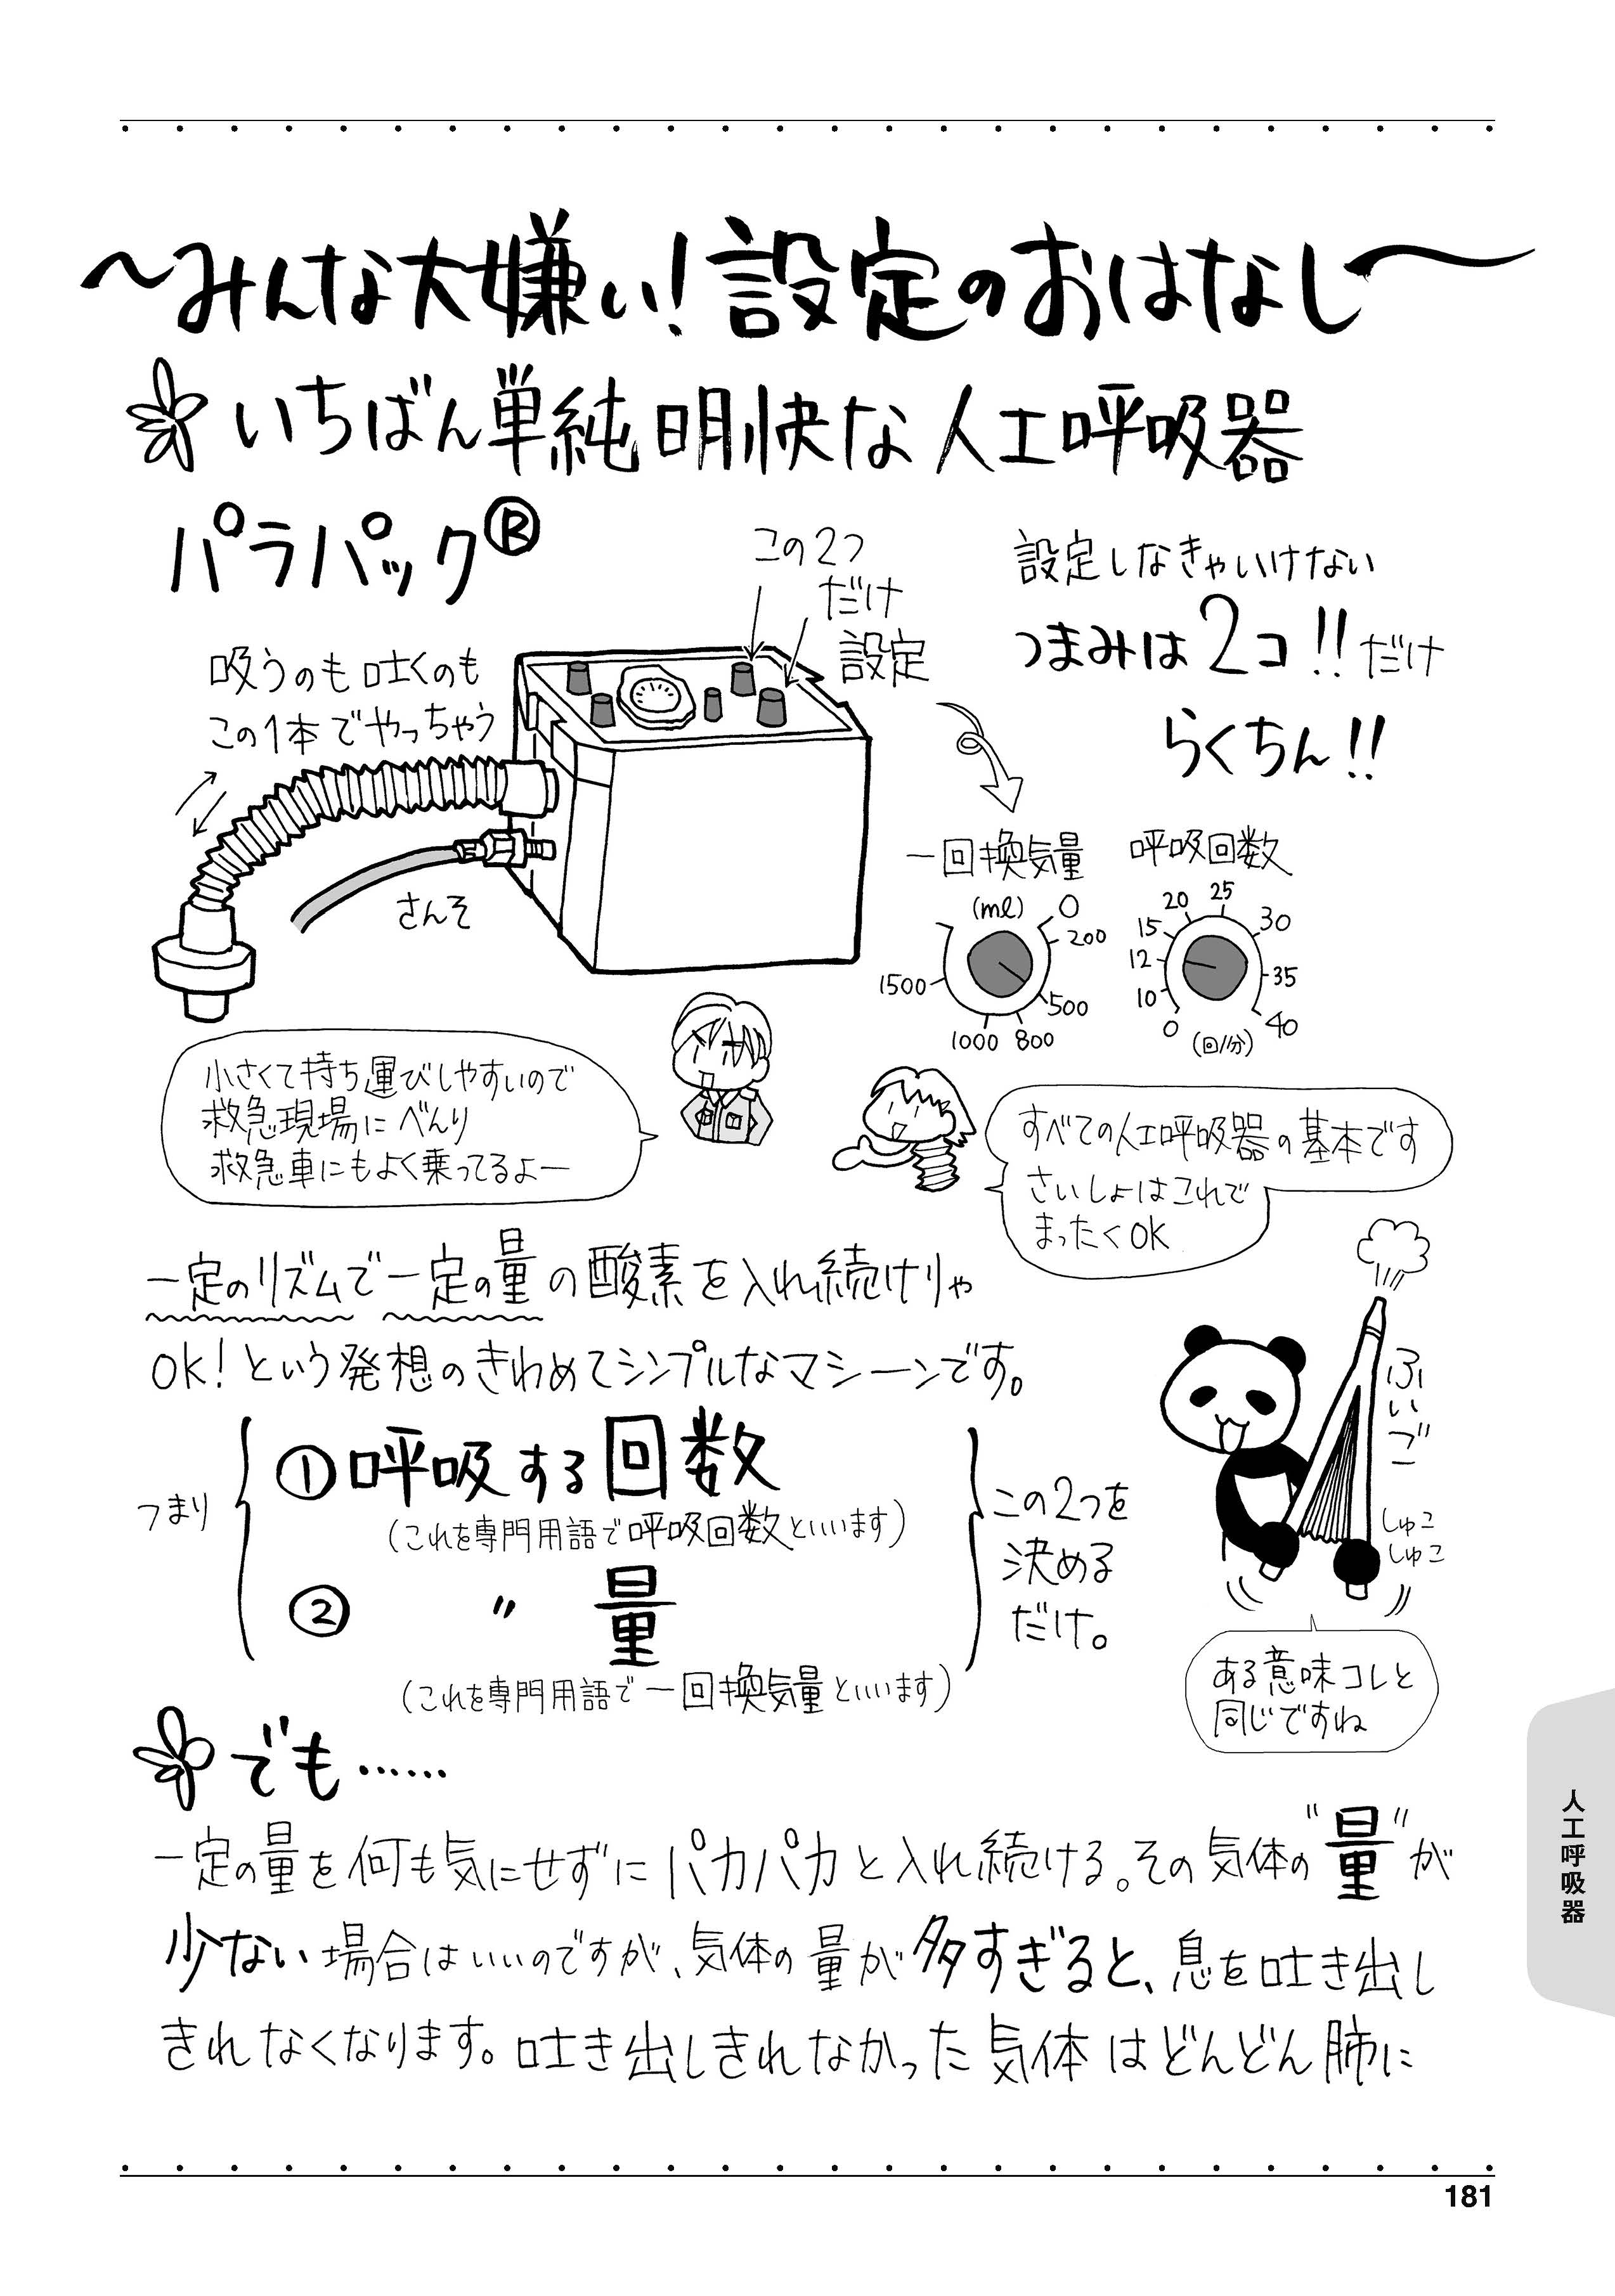 〜みんな大嫌い！設定のおはなし〜
いちばん単純明快な人工呼吸器
パラパック®
この2つ
だけ
設定
設定しなきゃいけない
つまみは2コ!!だけ
らくちん!!
吸うのも吐くのも
この1本でやっちゃう
さんそ
一回換気量
(ml)
0
200
500
800
1000
1500
呼吸回数
0
10
12
15
20
25
30
35
40
(回/分)
小さくて持ち運びしやすいので
救急現場にべんり
救急車にもよく乗ってるよー
すべての人工呼吸器の基本です
さいしょはこれで
まったくOK
一定のリズムで一定の量の酸素を入れ続けりゃ
OK！という発想のきわめてシンプルなマシーンです。
つまり
①呼吸する回数
(これを専門用語で呼吸回数といいます)
② 〃 量
(これを専門用語で一回換気量といいます)
この2つを
決める
だけ。
ふいご
しゅこ
しゅこ
ある意味コレと
同じですね
でも……
一定の量を何も気にせずにパカパカと入れ続ける。その気体の"量"が
少ない場合はいいのですが、気体の量が多すぎると、息を吐き出し
きれなくなります。吐き出しきれなかった気体はどんどん肺に
人工呼吸器
181